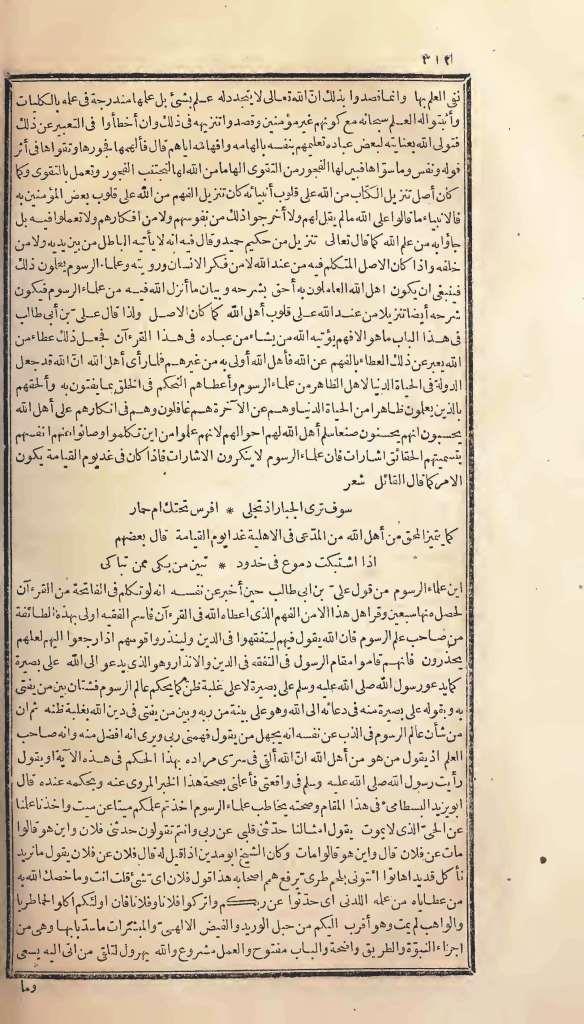 ٣١٢
نفى العلم بها وانما قصدوا بذلك انّ الله تعالى لا يتجدد له علم بشئ بل علمها مندرجة فى علمه بالكليات
وأثبتوا له العلم سبحانه مع كونهم غير مؤمنين وقصدوا تنزيهه فى ذلك وان أخطأوا فى التعبير عن ذلك
فتولى الله بعنايته لبعض عباده تعليمهم بنفسه بالهامه وافهامه اياهم قال فألهمها فجورها وتقواها فى أثر
قوله ونفس وما سوّاها فبين لها الفجور من التقوى الهاما من الله لها لتجتنب الفجور وتعمل بالتقوى وكما
كان أصل تنزيل الكتاب من الله على قلوب أنبيائه كان تنزيل الفهم من الله على قلوب بعض المؤمنين به
فالانبياء ما قالوا على الله مالم يقل لهم ولا أخرجوا ذلك من نفوسهم ولا من افكارهم ولا تعملوا فيه بل
جاؤا به من عند الله كما قال تعالى تنزيل من حكيم حميد وقال فيه انه لا يأتيه الباطل من بين يديه ولا من
خلفه واذا كان الاصل المتكلم فيه من عند الله لا من فكر الانسان ورويته وعلماء الرسوم يعلمون ذلك
فينبغى ان يكون اهل الله العاملون به أحق بشرحه وبيان ما أنزل الله فيه من علماء الرسوم فيكون
شرحه أيضا تنزيلا من عند الله على قلوب أهل الله كما كان الاصل ولذا قال على بن أبى طالب
فى هذا الباب ما هو الا فهم يؤتيه الله من يشاء من عباده فى هذا القرءآن فجعل ذلك عطاء من
الله يعبر عن ذلك العطاء بالفهم عن الله فأهل الله أولى به من غيرهم فلما رأى أهل الله انّ الله قد جعل
الدولة فى الحياة الدنيا لاهل الظاهر من علماء الرسوم وأعطاهم التحكم فى الخلق بما يفتون به وألحقهم
بالذين يعلمون ظاهرا من الحياة الدنيا وهم عن الآخرة هم غافلون وهم فى انكارهم على أهل الله
يحسبون انهم يحسنون صنعا سلم أهل الله لهم احوالهم لانهم علموا من اين تكلموا وصانوا عنهم انفسهم
بتسميتهم الحقائق اشارات فان علماء الرسوم لا ينكرون الاشارات فاذا كان فى غد يوم القيامة يكون
الامر كما قال القائل شعر
سوف ترى الجبار اذ تجلى * افرس تحتك ام حمار
كما يتميز المحق من أهل الله من المدّعى فى الاهلية غدا يوم القيامة قال بعضهم
اذا اشتبكت دموع فى خدود * تبين من بكى ممن تباكى
اين علماء الرسوم من قول على بن ابى طالب حين أخبر عن نفسه انه لو تكلم فى الفاتحة من القرءآن
لحمل منها سبعين وقرا هل هذا الا من الفهم الذى اعطاه الله فى القرءآن فاسم الفقيه اولى بهذه الطائفة
من صاحب علم الرسوم فان الله يقول فيهم ليتفقهوا فى الدين ولينذروا قومهم اذا رجعوا اليهم لعلهم
يحذرون فانهم قاموا مقام الرسول فى التفقه فى الدين والانذار وهو الذى يدعو الى الله على بصيرة
كما يدعو رسول الله صلى الله عليه وسلم على بصيرة لا على غلبة ظن كما يحكم عالم الرسوم فشتان بين من يفتى
به ويقوله على بصيرة منه فى دعائه الى الله وهو على بينة من ربه وبين من يفتى فى دين الله بغلبة ظنه ثم ان
من شأن عالم الرسوم فى الذب عن نفسه انه يجهل من يقول فهمنى ربى ويرى انه افضل منه وانه صاحب
العلم اذ يقول من هو من أهل الله انّ الله ألقى فى سرى مراده بهذا الحكم فى هذه الآية او يقول
رأيت رسول الله صلى الله عليه وسلم فى واقعتى فأعلمنى بصحة هذا الخبر المروى عنه وبحكمه عنده قال
ابو يزيد البسطامى فى هذا المقام وصحته يخاطب علماء الرسوم اخذتم علمكم ميتا عن ميت واخذنا علمنا
عن الحى الذى لا يموت يقول امثالنا حدّثنى قلبى عن ربى وانتم تقولون حدثنى فلان واين هو قالوا
مات عن فلان قال واين هو قالوا مات وكان الشيخ ابو مدين اذا قيل له قال فلان عن فلان يقول ما نريد
نأكل قديدا هاتوا ائتونى بلحم طرى يرفع همم اصحابه هذا قول فلان اى شئ قلت انت وما خصك الله به
من عطاياه من علمه اللدنى اى حدّثوا عن ربكم واتركوا فلانا وفلانا فان اولئكم اكلوا لحما طريا
والواهب لم يمت وهو أقرب اليكم من حبل الوريد والفيض الالهى والمبشرات ما سدّ بابها وهى من
اجزاء النبوّة والطريق واضحة والباب مفتوح والعمل مشروع والله يهرول لتلقى من اتى اليه يسعى
وما